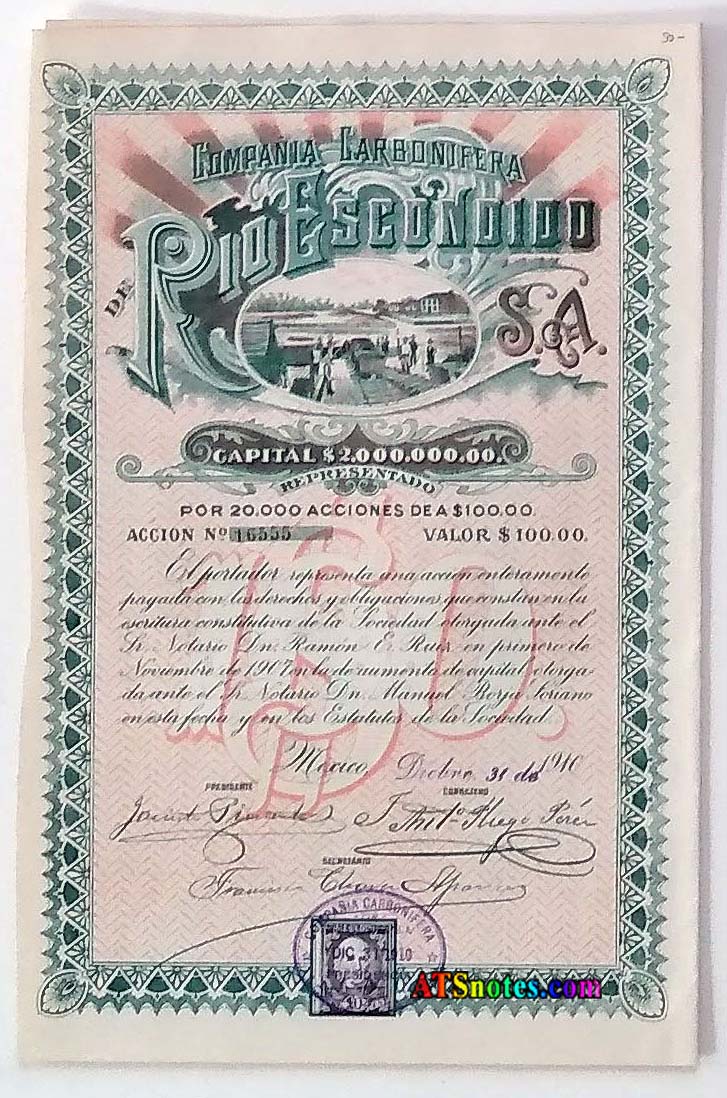 30-
COMPAÑIA CARBONIFERA
DE RIO ESCONDIDO
S.A.
CAPITAL $2,000,000.00.
REPRESENTADO
POR 20.000 ACCIONES DE A $100.00.
ACCION Nº 16555 VALOR $100.00.
El portador representa una acción enteramente
pagada con los derechos y obligaciones que constan en la
escritura constitutiva de la Sociedad otorgada ante el
Sr. Notario Dn. Ramón E. Ruiz en primero de
Noviembre de 1907 en la de aumento de capital otorga-
da ante el Sr. Notario Dn. Manuel Borja Soriano
en esta fecha y en los Estatutos de la Sociedad.
México, Dicbre 31 de 1910
PRESIDENTE CONSEJERO
SECRETARIO
COMPAÑIA CARBONIFERA
DIC 31 1910
ATSnotes.com